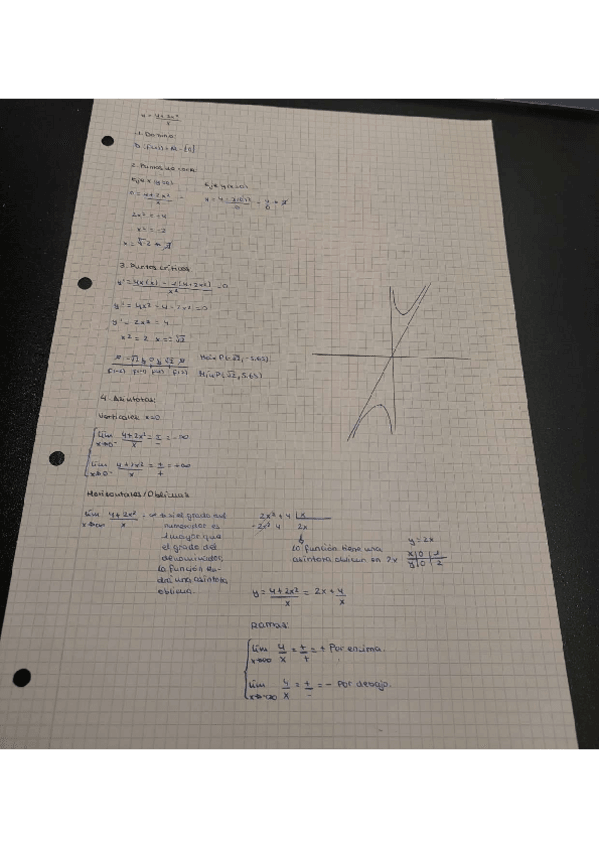 y = 4+2x²/x
1. Dominio:
D: f(x) = R - {0}
2. Puntos de corte:
Eje x (y=0) Eje y (x=0)
0 = 4+2x²/x
2x² = -4
x² = -2
x = √-2 → ∄
3. Puntos críticos:
y' = 4x(x) - 1(4+2x²)/x² = 0
y' = 4x² - 4 - 2x² = 0
y' = 2x² = 4
x² = 2 x = ±√2
Máx P(-√2, -5.65)
Mín P(√2, 5.65)
4. Asíntotas:
Verticales: x=0
lim x→0⁻ 4+2x²/x = +/- = -∞
lim x→0⁺ 4+2x²/x = +/+ = +∞
Horizontales/Oblicuas
lim x→∞ 4+2x²/x = ∞ → si el grado del
numerador es
1 mayor que
el grado del
denominador,
la función
una asíntota
oblicua.
2x²+4 |x
-2x² 4 2x
La función tiene una
asíntota oblicua en 2x
y = 2x
x|0|1
y|0|2
y = 4+2x²/x = 2x + 4/x
Ramas:
lim x→∞ 4/x = +/+ = + Por encima.
lim x→-∞ 4/x = +/- = - Por debajo.